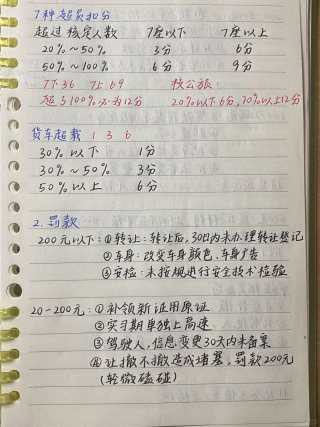 7种超员扣分
超过核定人数 7座以下 7座以上
20%~50% 3分 6分
50%~100% 6分 9分
7下36 7上69 校公旅:
超与100%必为12分 20%以下6分,20%以上12分
货车超载 1 3 6
30%以下 1分
30%~50% 3分
50%以上 6分
2.罚款
200元以下:①转让:转让后,30日内未办理转让登记
②车身:改变车身颜色、车身广告
③安检:未按规进行安全技术检验
20-200元:①补领新证用原证
②实习期单独上高速
③驾驶人,信息变更30天内未备案
④让撤不撤造成堵塞,罚款200元
(轻微磕碰)